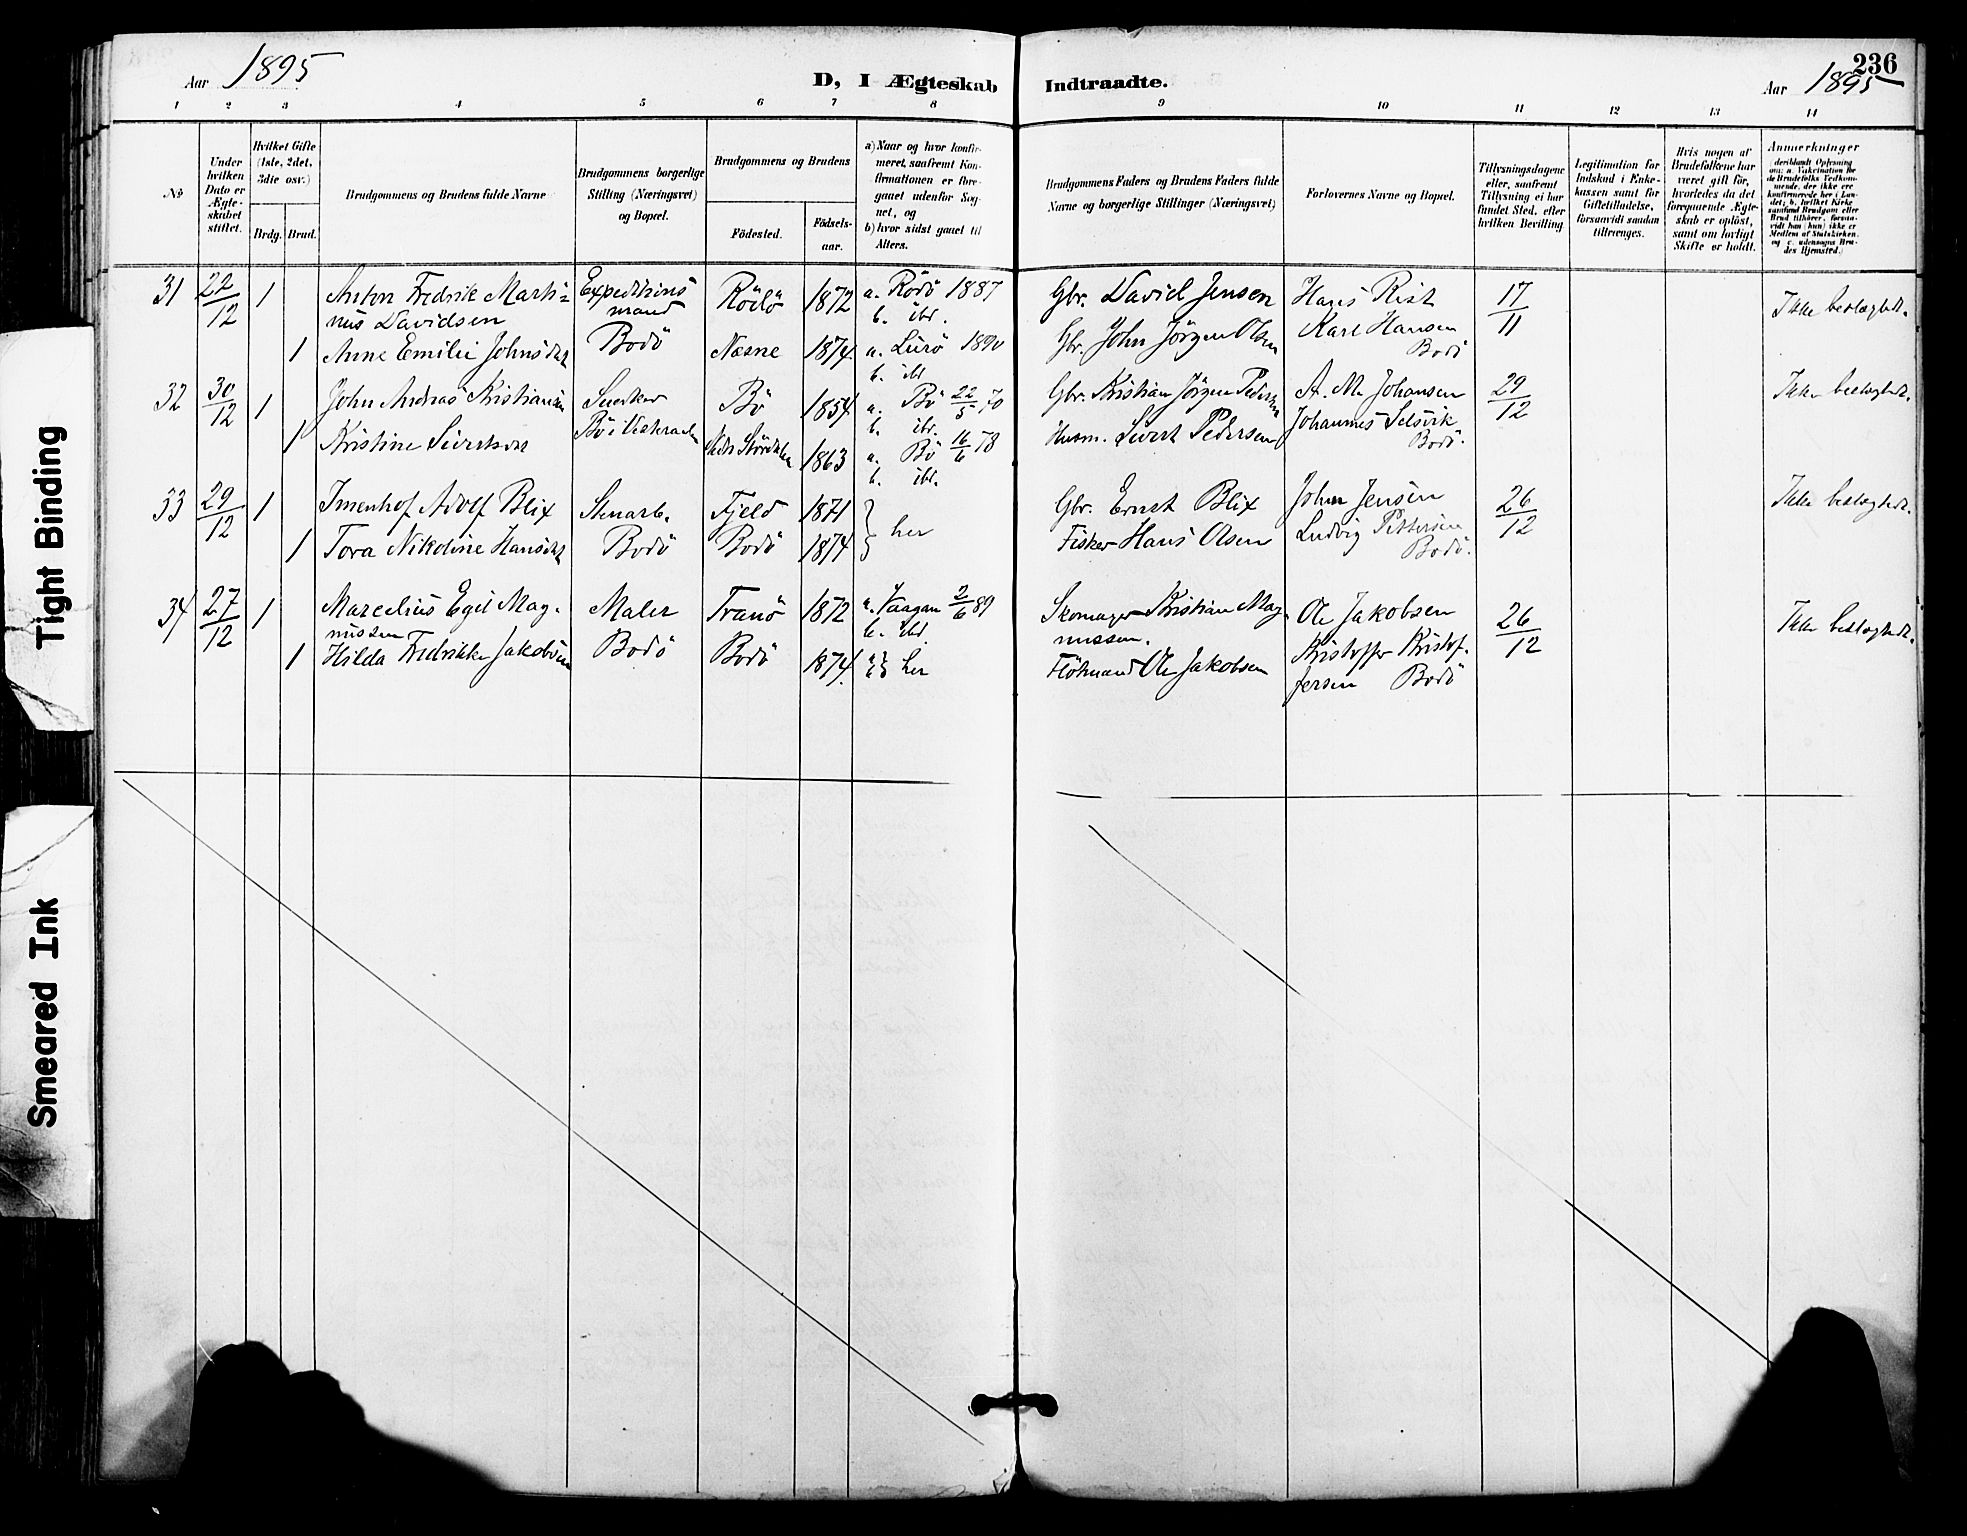 Tight Binding
Smeared Ink
Aar 1895
D, I Ægteskab Indtraadte.
236
Aar 1895
1 2 3 4 5 6 7 8 9 10 11 12 13 14
No
Under hvilken Dato er Ægteskabet stiftet.
Hvilket Gifte (1ste, 2det, 3die osv.)
Brdg. Brud.
Brudgommens og Brudens fulde Navne
Brudgommens borgerlige Stilling (Næringsvei) og Bopæl.
Brudgommens og Brudens
Fødested. Fødsels-aar.
a) Naar og hvor konfirmeret, saafremt Konfirmationen er foregaaet udenfor Sognet, og
b) hvor sidst gaaet til Alters.
Brudgommens Faders og Brudens Faders fulde Navne og borgerlige Stillinger (Næringsvei)
Forlovernes Navne og Bopæl.
Tillysningsdagene eller, saafremt Tillysning ei har fundet Sted, efter hvilken Bevilling
Legitimation for Indskud i Enkekassen samt for Giftetilladelse, forsaavidt saadan tiltrænges.
Hvis nogen af Brudefolkene har været gift før, hvorledes da det foregaaende Ægteskab er opløst, samt om lovligt Skifte er holdt.
Anmerkninger
31 22/12 1 Anton Fredrik Marti= Expeditions Rödö 1872 a. Rödö 1887 Gbr. David Jensen Hans Rist 17/11 Ikke beslægtet.
nus Davidsen mand b. ibd.
1 Anne Emilie Johnsdtr Bodö Næsne 1874 a. Lurö 1890 Gbr. John Jörgen Olsen Karl Hansen
b. ibd Bodö
32 30/12 1 John Andreas Kristiansen Snedker Bö 1854 a. Bö 22/5 70 Gbr. Kristian Jörgen Pedersen A. M. Johansen 29/12 Ikke beslægtet.
Bö i Vesteraalen b. ibd. Johannes Selsvik
1 Kristine Sivertsen Nedre Stördalen 1863 a. Bö 16/6 78 Husm. Sivert Pedersen Bodö.
b. ibd.
33 29/12 1 Imenhof Adolf Blix Stenarb. Fjeld 1871 Gbr. Ernst Blix John Jensen 26/12 Ikke beslægtet.
her
1 Tora Nikoline Hansdtr Bodö Bodö 1874 Fisker Hans Olsen Ludvig Pettersen
Bodö.
34 27/12 1 Marcelius Egil Mag- Maler Tranö 1872 a. Vaagan 2/6 89 Skomager Kristian Mag- Ole Jakobsen 26/12 Ikke beslægtet.
nussen b. ibd. nussen.
1 Hilda Fredrikke Jakobsen Bodö Bodö 1874. a. b. her Flötmand Ole Jakobsen Kristoffer Kristof-
fersen Bodö